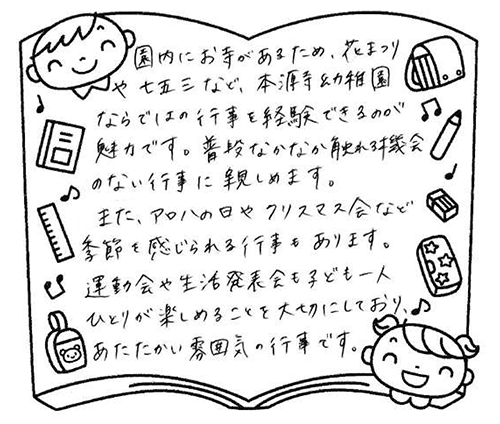 園内にお寺があるため、花まつり
や七五三など、本源寺幼稚園
ならではの行事を経験できるのが
魅力です。普段なかなか触れる機会
のない行事に親しめます。
また、アロハの日やクリスマス会など
季節を感じられる行事もあります。
運動会や生活発表会も子ども一人
ひとりが楽しめることを大切にしており、
あたたかい雰囲気の行事です。